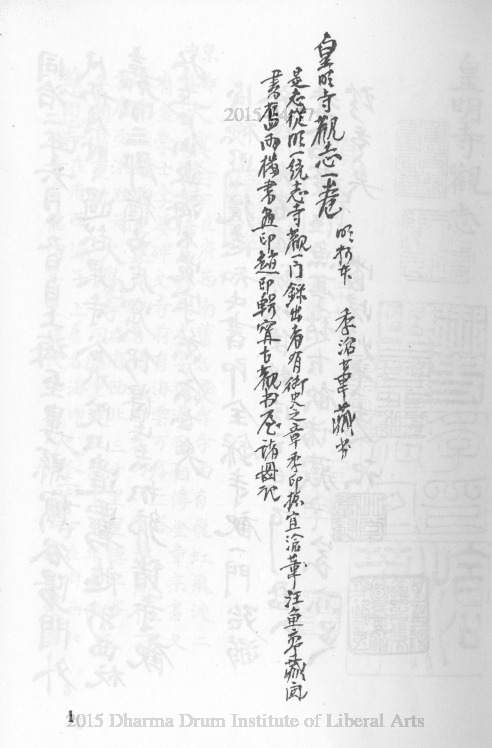 皇明寺觀志一卷 明抄本 季滄葦藏書
是志從明一統志寺觀一門錄出者有御史之章季印振宜滄葦汪魚亭藏閱
書舊雨樓書畫印趙印輯寧古觀書屋諸圖記
1
2015 Dharma Drum Institute of Liberal Arts